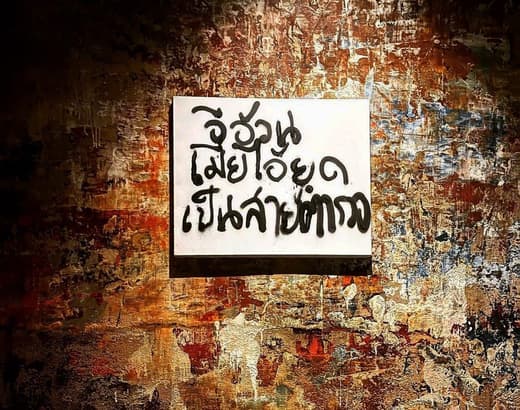 อีอ้วน
เมียไอ้ยุด
เป็นสายตำรวจ